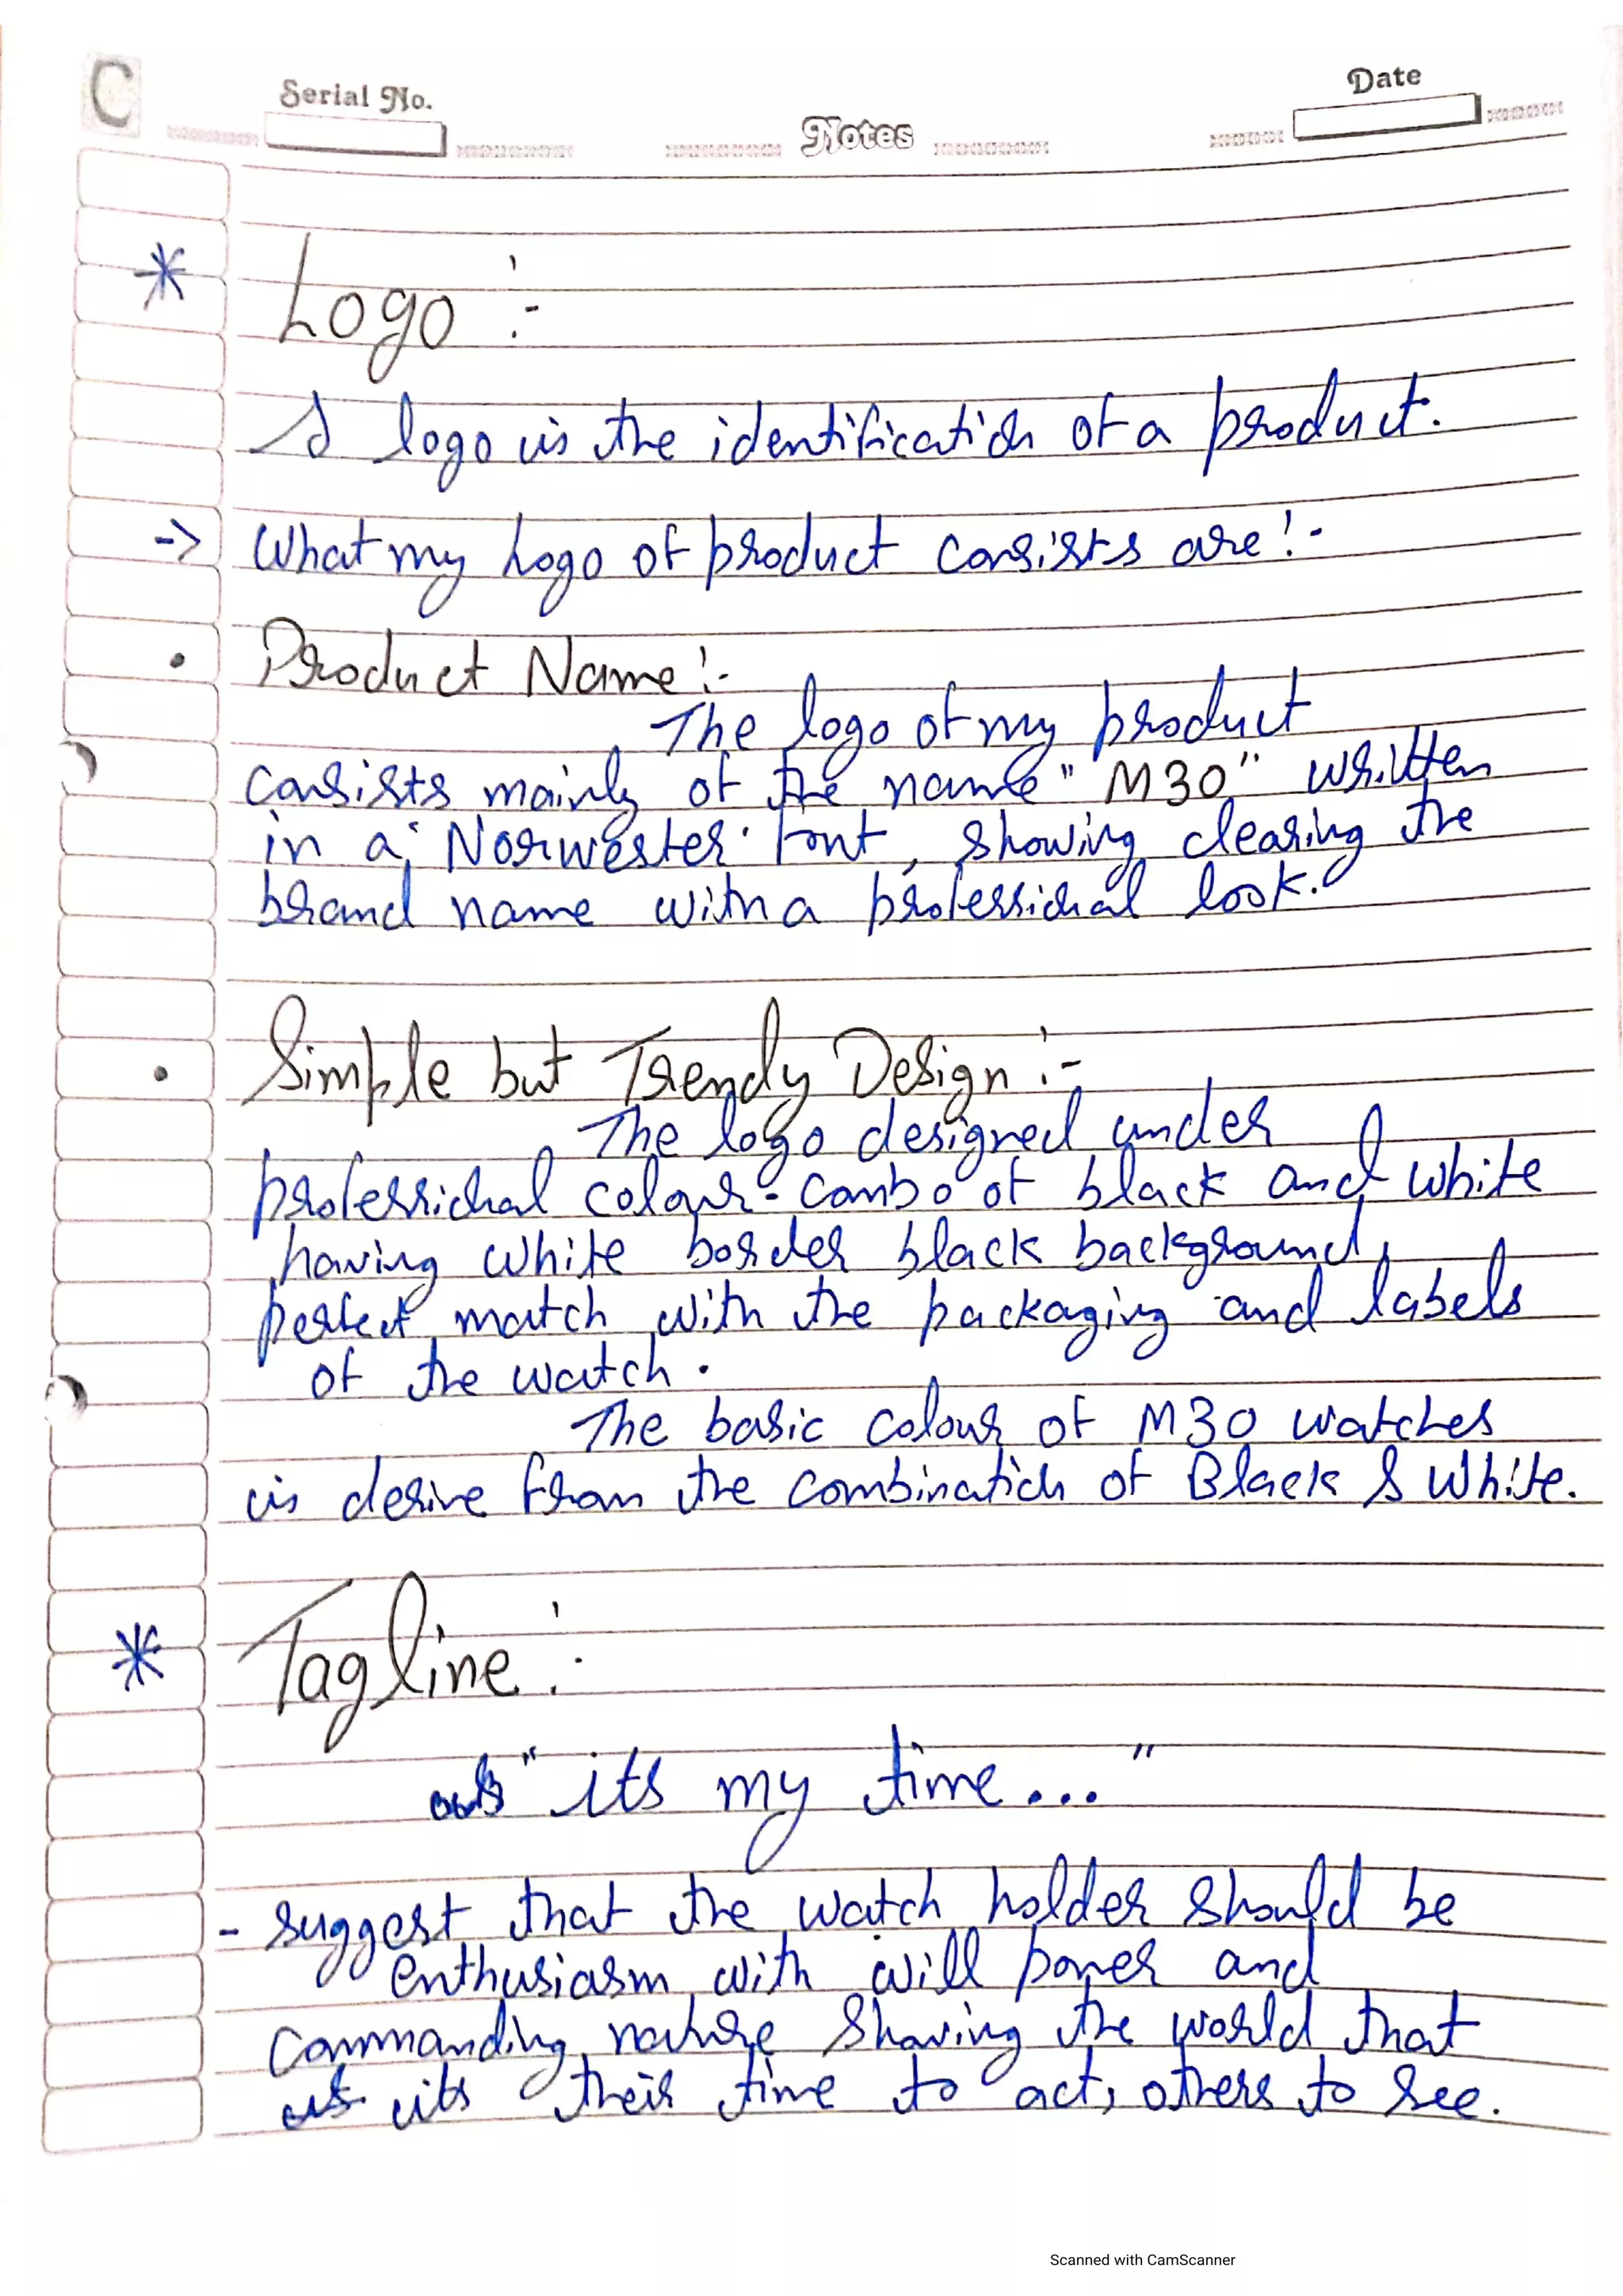 C
Serial No.
Notes
Date
* Logo :-
A logo is the identification of a product.
-> What my Logo of product consists are :-
• Product Name :-
The logo of my product
consists mainly of the name "M30" written
in a 'Norwester' font, showing clearing the
brand name with a professional look.
• Simple but Trendy Design :-
The logo designed under
professional colour-combo of black and white
having white border black background,
perfect match with the packaging and labels
of the watch.
The basic colour of M30 watches
is derive from the combination of Black & White.
* Tagline :
"its my time..."
- suggest that the watch holder should be
enthusiasm with will power and
commanding nature showing the world that
its their time to act, others to see.
Scanned with CamScanner